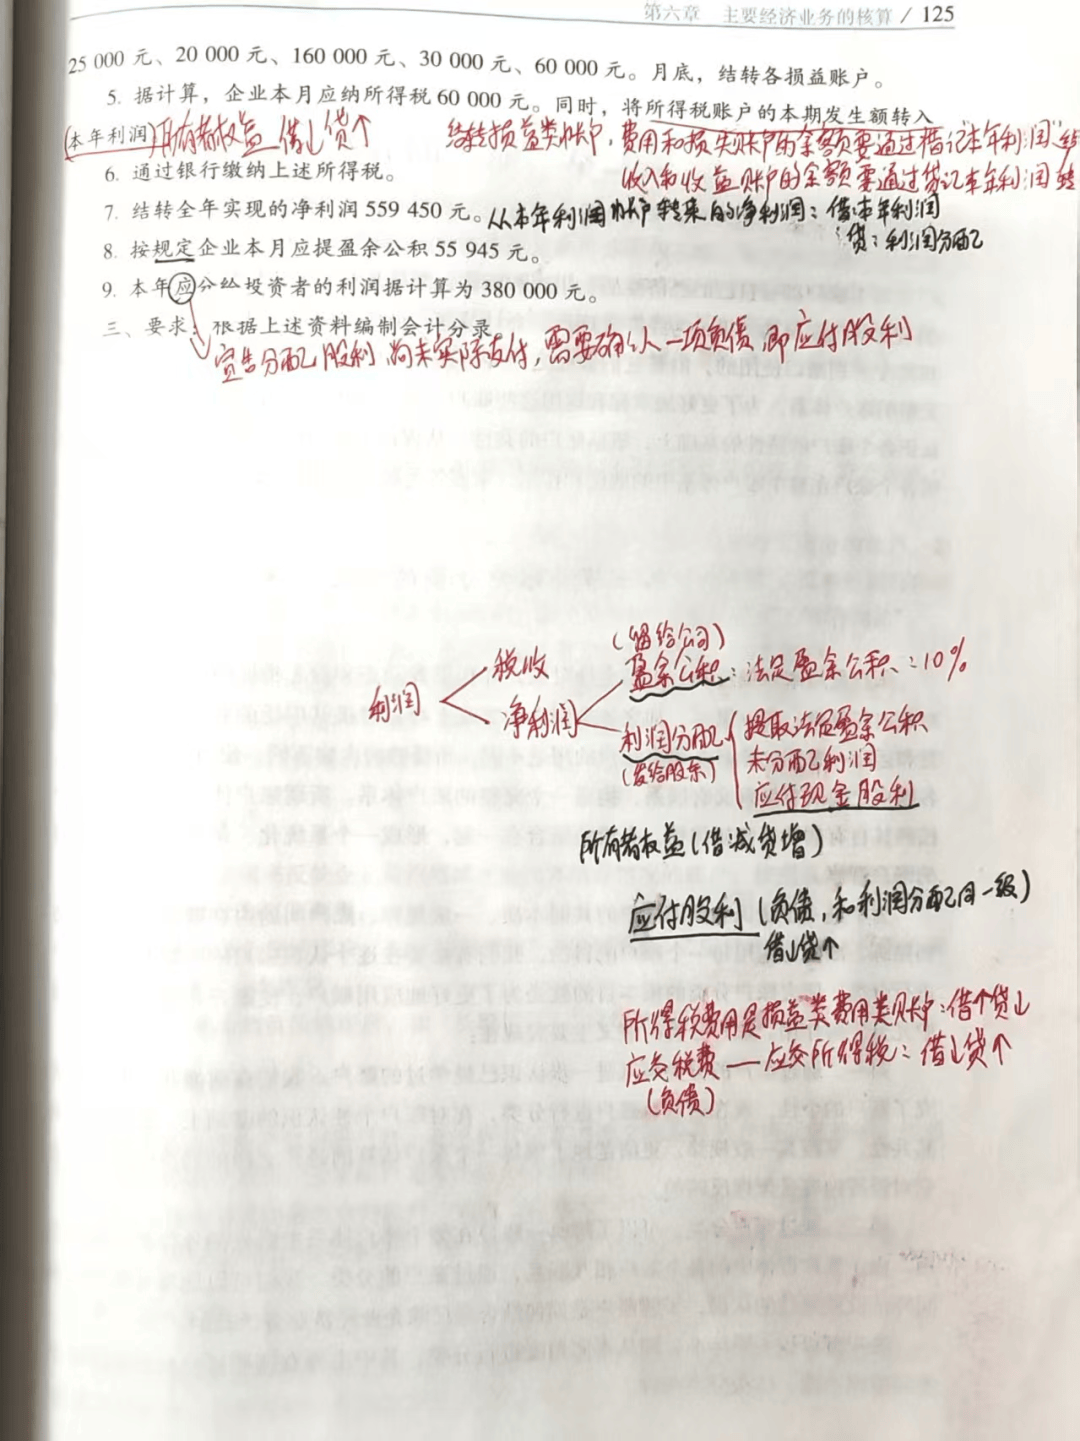 第六章 主要经济业务的核算 / 125
25 000 元、20 000 元、160 000 元、30 000 元、60 000 元。月底，结转各损益账户。
5. 据计算，企业本月应纳所得税 60 000 元。同时，将所得税账户的本期发生额转入
本年利润 所有者权益 借↓贷↑
结转损益类账户，费用和损失账户的余额要通过借记"本年利润"
收入和收益账户的余额要通过贷记本年利润
6. 通过银行缴纳上述所得税。
7. 结转全年实现的净利润 559 450 元。
从本年利润账户转来的净利润：借：本年利润
贷：利润分配
8. 按规定企业本月应提盈余公积 55 945 元。
9. 本年应分给投资者的利润据计算为 380 000 元。
三、要求：根据上述资料编制会计分录。
宣告分配股利 尚未实际支付，需要确认一项负债，即应付股利
(留给公司)
税收
盈余公积：法定盈余公积：10%
利润
净利润
利润分配
提取法定盈余公积
(发给股东)
未分配利润
应付现金股利
所有者权益(借减贷增)
应付股利(负债，和利润分配同一级)
借↓贷↑
所得税费用是损益类费用类账户：借↑贷↓
应交税费——应交所得税：借↓贷↑
(负债)